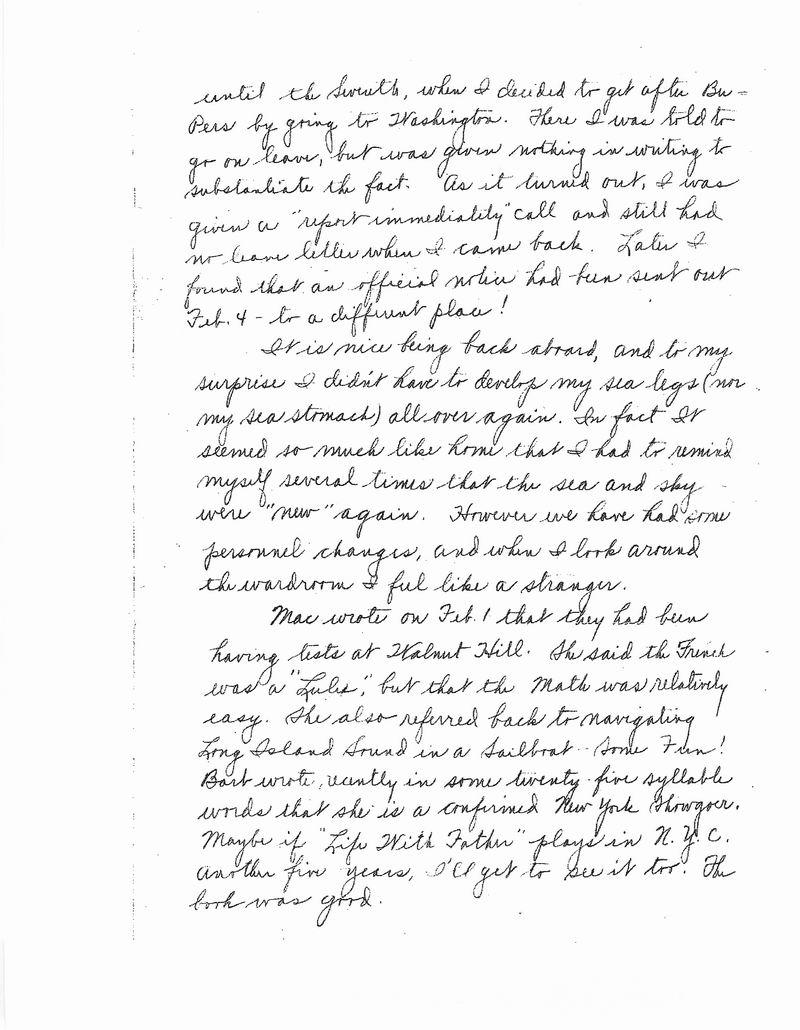 until the Seventh, when I decided to get after Bu-
Pers by going to Washington. There I was told to
go on leave, but was given nothing in writing to
substantiate the fact. As it turned out, I was
given a "report immediality" call and still had
no leave letter when I came back. Later I
found that an official notice had been sent out
Feb. 4 - to a different place!
It is nice being back aboard, and to my
surprise I didn't have to develop my sea legs (nor
my sea stomach) all over again. In fact It
seemed so much like home that I had to remind
myself several times that the sea and sky
were "new" again. However we have had some
personnel changes, and when I look around
the wardroom I feel like a stranger.
Mac wrote on Feb. 1 that they had been
having tests at Walnut Hill. She said the French
was a "Lulu," but that the Math was relatively
easy. She also referred back to navigating
Long Island Sound in a Sailboat - Some Fun!
Bart wrote, recently in some twenty-five syllable
words that she is a confirmed New York Showgoer.
Maybe if "Life With Father" plays in N.Y.C.
another five years, I'll get to see it too. The
book was good.